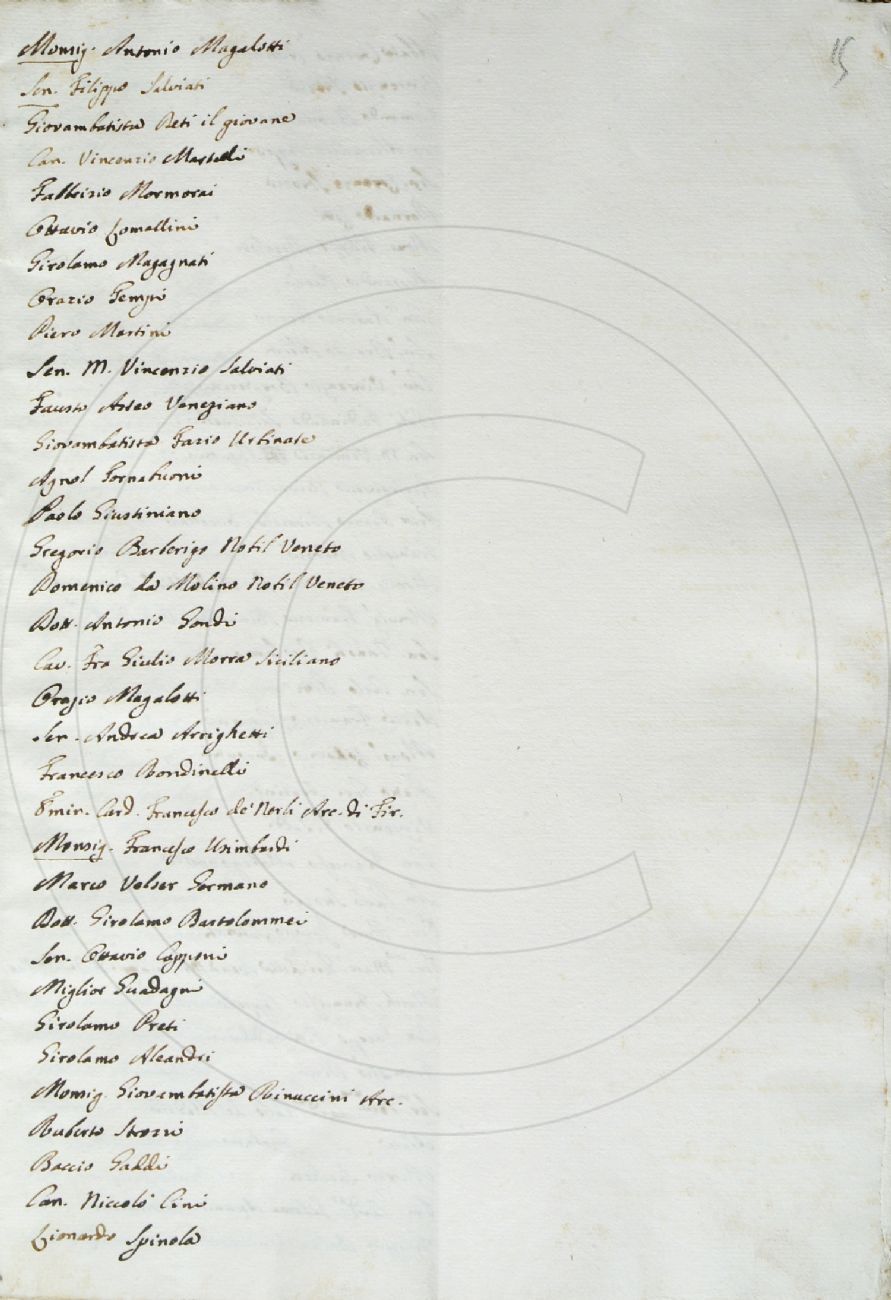 15
Monsig. Antonio Magalotti
Sen. Filippo Salviati
Giovambatista Deti il giovane
Can. Vincenzio Martelli
Fabbrizio Mormorai
Ottavio Lomellini
Girolamo Magagnati
Orazio Tempi
Piero Martini
Sen. M. Vincenzio Salviati
Fausto Asteo Veneziano
Giovambatista Fazio Urbinate
Agnol Tornabuoni
Paolo Giustiniano
Gregorio Barberigo Nobil Veneto
Domenico da Molino Nobil Veneto
Dott. Antonio Gondi
Cav. Fra Giulio Morra Siciliano
Orazio Magalotti
Sen. Andrea Arrighetti
Francesco Rondinelli
Emin. Card. Francesco de' Nerli Arc. di Fir.
Monsig. Francesco Usimbardi
Marco Velser Germano
Dott. Girolamo Bartolommei
Sen. Ottavio Capponi
Miglior Guadagni
Girolamo Preti
Girolamo Aleandri
Monsig. Giovambatista Rinuccini Arc.
Ruberto Strozzi
Baccio Gaddi
Can. Niccolò Cini
Lionardo Spinola